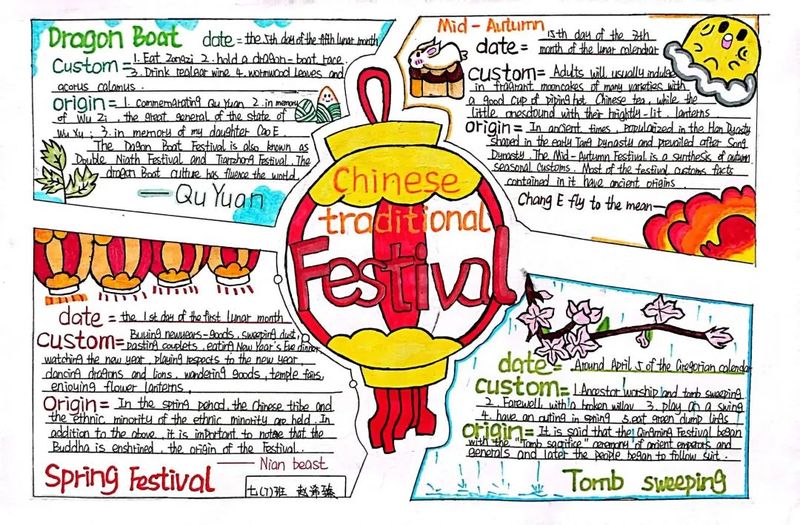 Dragon Boat date = the 5th day of the fifth lunar month
custom = 1. Eat zongzi 2. hold a dragon-boat race.
3. Drink realgar wine 4. wormwood leaves and
acorus calamus.
origin = 1. commemorating Qu Yuan 2. in memory
of Wu Zi, the great general of the state of
Wu Xu; 3. in memory of my daughter Cao E
The Dagon Boat Festival is also known as
Double Ninth Festival and Tianzhong Festival. The
dragon Boat culture has fluence the world.
— Qu Yuan
Mid - Autumn
date = 15th day of the 7th
month of the lunar calendar
custom = Adults will usually indulge
in fragrant mooncakes of many varieties with
a good cup of piping hot Chinese tea, while the
little onesdound with their brightly-lit lanterns
origin = In ancient times, popularized in the Han Dyasty
shaped in the early Tang Dynasty and prevailed after Song
Dynasty. The Mid-Autumn Festival is a synthesis of autumn
seasonal customs. Most of the festival customs facts
contained in it have ancient origins
Chang E fly to the mean
Chinese
traditional
Festival
date = the 1st day of the first lunar month
custom = Buying newyears-goods, sweeping dust,
pasting couplets, eating New Year's Eve dinner
watching the new year, playing respects to the new year,
dancing dragons and lions, wandering goods, temple fairs,
enjoying flower lanterns,
Origin = In the spring period, the Chinese tribe and
the ethnic minority of the ethnic minority are held. In
addition to the above, it is important to notare that the
Buddha is enshrined, the origin of the Festival.
— Nian beast
Spring Festival
七(7)班 赵希臻
date = Around April 5 of the Gregorian calendar
custom = 1. Ancestor worship and tomb sweeping
2. Farewell with a broken willow 3. play on a swing
4. have an outing in spring 5. eat green dump lings
origin = It is said that the QinGming Festival began
with the "Tomb sagrifice" ceremony of ancient emperors and
generals and later the people began to follow suit.
Tomb sweeping